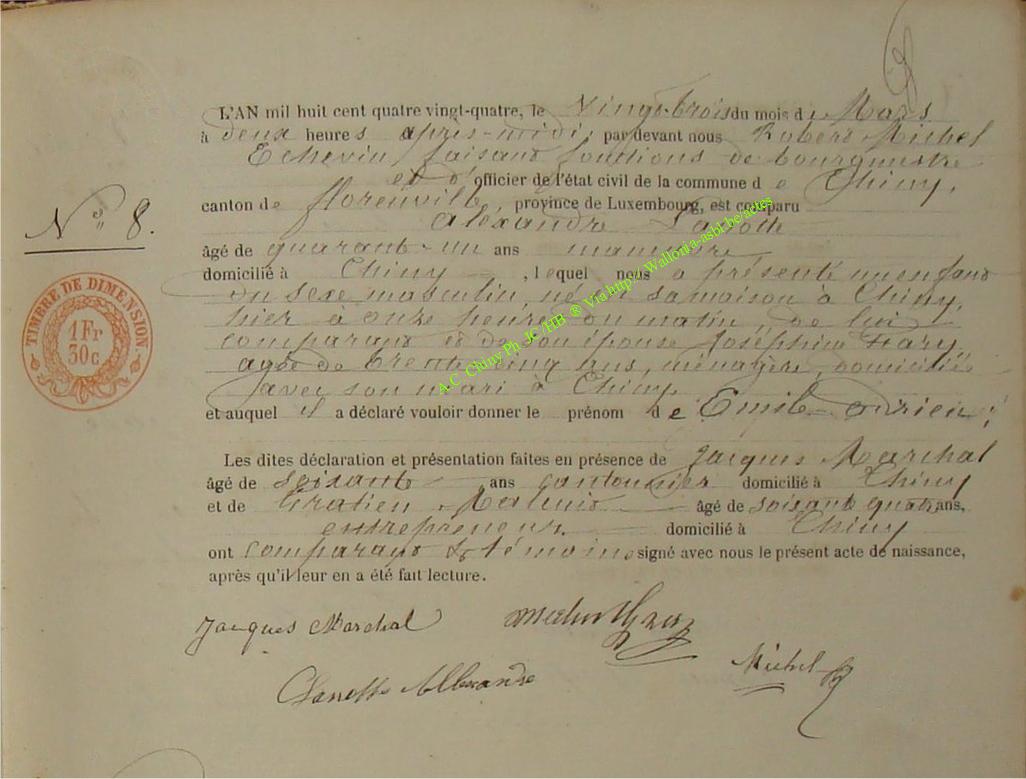 L'AN mil huit cent quatre vingt-quatre, le Vingt-trois du mois de Mars
à deux heures après-midi, par devant nous Robert Michel
Echevin faisant fonctions de bourgmestre
et d'officier de l'état civil de la commune de Chiny,
canton de florenville, province de Luxembourg, est comparu
Alexandre
âgé de quarant-un ans manœuvre
domicilié à Chiny, lequel nous a présenté un enfant
du sexe masculin, né en sa maison à Chiny,
hier à onze heures du matin, de lui
comparant et de son épouse Joséphine Hary
agée de trente cinq ans, ménagère, domiciliée
avec son mari à Chiny
et auquel il a déclaré vouloir donner le prénom de Emile
Les dites déclaration et présentation faites en présence de Jacques Marchal
âgé de soixante ans cantonnier domicilié à Chiny
et de Gratien âgé de soixante quatre ans,
entrepreneur domicilié à Chiny
ont comparant & témoins signé avec nous le présent acte de naissance,
après qu'il leur en a été fait lecture.
N° 8.
TIMBRE DE DIMENSION
1 Fr
30 c
A.C Chiny Ph. JC/HB ® Via https://Wallonia-asbl.be/actes
Jacques Marchal
Michel R
Alexandre